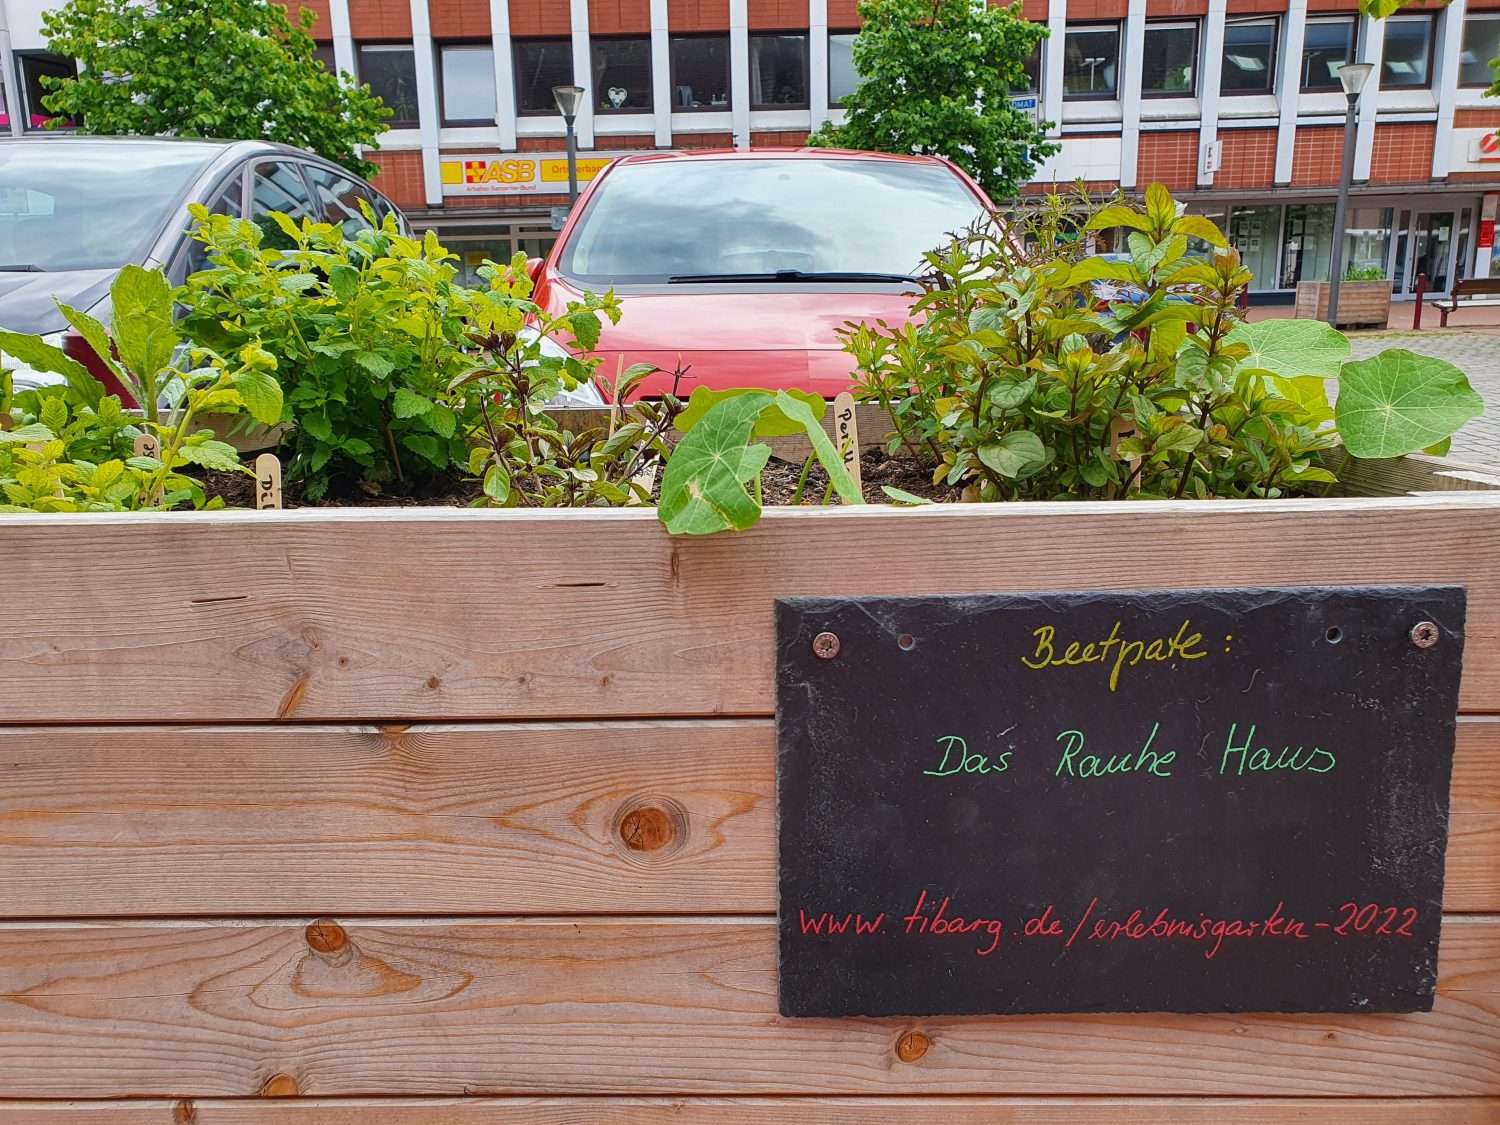 ASB
Arbeiter-Samariter-Bund
Beetpate:
Das Rauhe Haus
www.tibarg.de/erlebnisgarten-2022